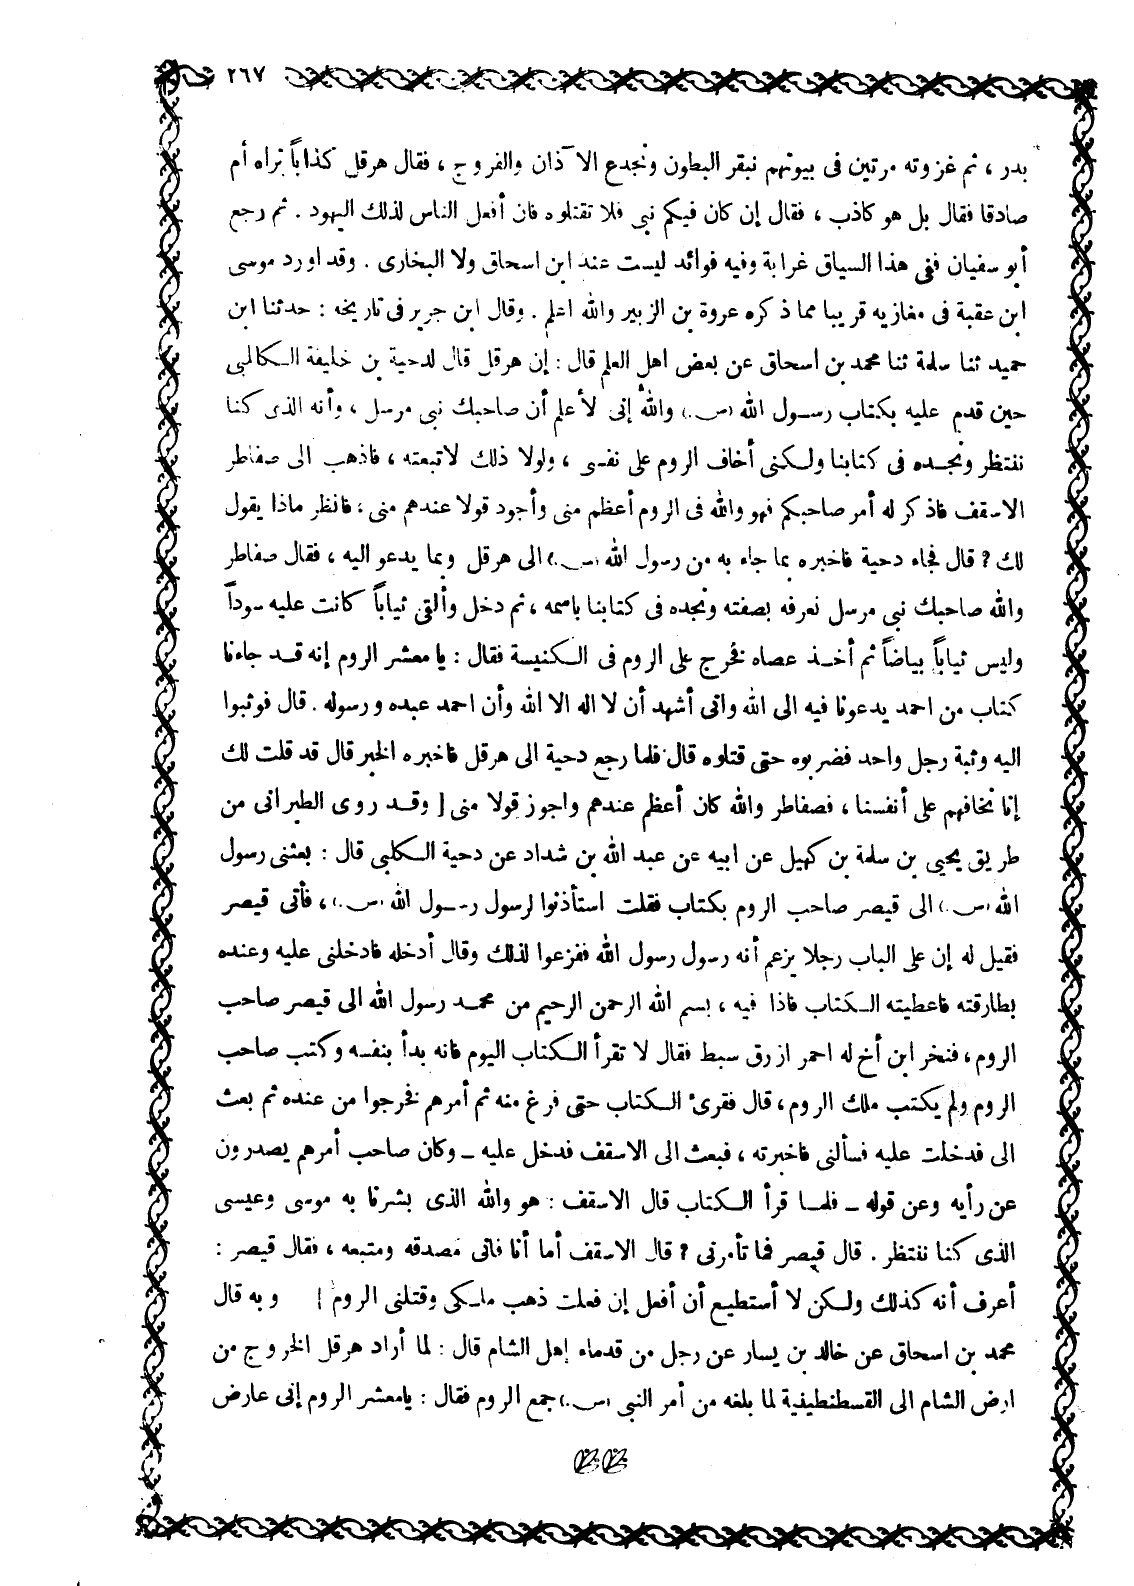 ٢٦٧
بدر ، ثم غزوته مرتين فى بيوتهم نبقر البطون ونجدع الآذان والفروج ، فقال هرقل كذاباً تراه أم
صادقا فقال بل هو كاذب ، فقال إن كان فيكم نبى فلا تقتلوه فان أفعل الناس لذلك اليهود . ثم رجع
أبو سفيان ففى هذا السياق غرابة وفيه فوائد ليست عند ابن اسحاق ولا البخارى . وقد اورد موسى
ابن عقبة فى مغازيه قريبا مما ذكره عروة بن الزبير والله اعلم . وقال ابن جرير فى تاريخه : حدثنا ابن
حميد ثنا سلمة ثنا محمد بن اسحاق عن بعض اهل العلم قال : إن هرقل قال لدحية بن خليفة الكالمبى
حين قدم عليه بكتاب رسول الله (س.) والله إنى لأعلم أن صاحبك نبى مرسل ، وأنه الذى كنا
ننتظر ونجده فى كتابنا ولكنى أخاف الروم على نفسى ، ولولا ذلك لاتبعته ، فاذهب الى صفاطر
الاسقف فاذكر له أمر صاحبكم فهو والله فى الروم أعظم منى وأجود قولا عندهم منى ، فانظر ماذا يقول
لك ? قال فجاء دحية فاخبره بما جاء به من رسول الله (س.) الى هرقل وبما يدعو اليه ، فقال صفاطر
والله صاحبك نبى مرسل نعرفه بصفته ونجده فى كتابنا باسمه ، ثم دخل وألقى ثياباً كانت عليه سوداً
وليس ثياباً بياضاً ثم أخذ عصاه فخرج على الروم فى الكنيسة فقال : يامعشر الروم إنه قد جاءنا
كتاب من احمد يدعونا فيه الى الله وانى أشهد أن لا اله الا الله وأن احمد عبده ورسوله . قال فوثبوا
اليه وثبة رجل واحد فضربوه حتى قتلوه قال فلما رجع دحية الى هرقل فاخبره الخبر قال قد قلت لك
إنا نخافهم على أنفسنا ، فصفاطر والله كان أعظم عندهم واجوز قولا منى [ وقد روى الطبرانى من
طريق يحيى بن سلمة بن كهيل عن ابيه عن عبد الله بن شداد عن دحية الكلبى قال : بعثنى رسول
الله (س.) الى قيصر صاحب الروم بكتاب فقلت استأذنوا لرسول رسول الله (س.) ، فأتى قيصر
فقيل له إن على الباب رجلا يزعم أنه رسول رسول الله ففزعوا لذلك وقال أدخله فادخلنى عليه وعنده
بطارقته فاعطيته الكتاب فاذا فيه ، بسم الله الرحمن الرحيم من محمد رسول الله الى قيصر صاحب
الروم ، فنخر ابن أخ له احمر ازرق سبط فقال لا تقرأ الكتاب اليوم فانه بدأ بنفسه وكتب صاحب
الروم ولم يكتب ملك الروم ، قال فقرئ الكتاب حتى فرغ منه ثم أمرهم فخرجوا من عنده ثم بعث
الى فدخلت عليه فسألنى فاخبرته ، فبعث الى الاسقف فدخل عليه ــ وكان صاحب أمرهم يصدرون
عن رأيه وعن قوله ــ فلما قرأ الكتاب قال الاسقف : هو والله الذى بشرنا به موسى وعيسى
الذى كنا ننتظر . قال قيصر فما تأمرنى ? قال الاسقف أما أنا فانى مصدقه ومتبعه ، فقال قيصر :
أعرف أنه كذلك ولكن لا أستطيع أن أفعل إن فعلت ذهب ملكى وقتلنى الروم ] وبه قال
محمد بن اسحاق عن خالد بن يسار عن رجل من قدماء إهل الشام قال : لما أراد هرقل الخروج من
ارض الشام الى القسطنطينية لما بلغه من أمر النبى (س.) جمع الروم فقال : يامعشر الروم إنى عارض